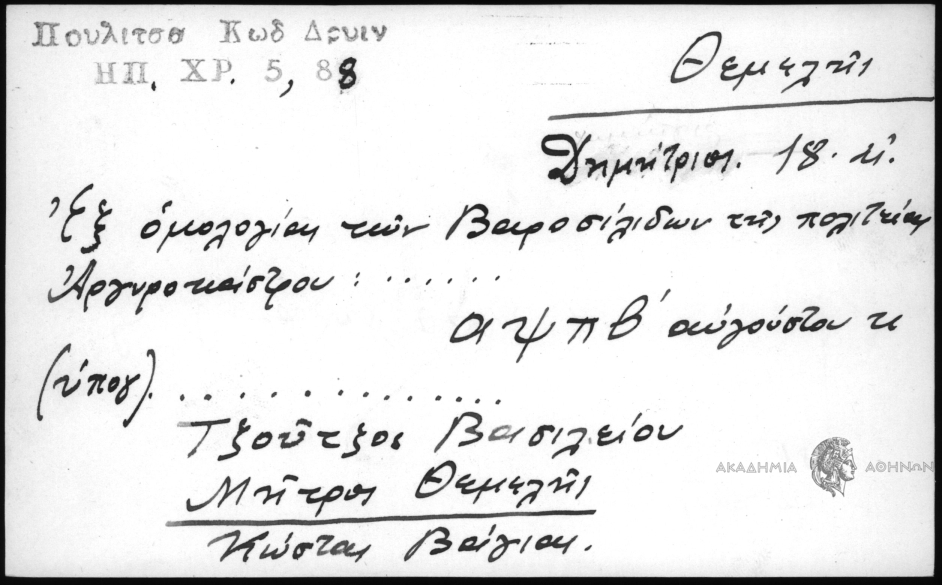 Πουλιτσα Κωδ Δρυιν
ΗΠ. ΧΡ. 5, 88
Θεμελῆς
Δημήτριος. 18. κ.
Ἐξ ὁμολογίας τῶν Βαροσιλιδων τῆς πολιτείας
Ἀργυροκάστρου : ......
αψπβ' αὐγούστου κ
(ὑπογ). ...............
Τζοῦτζος Βασιλείου
Μῆτρος Θεμελῆς
Κώστας Βάγιας.
ΑΚΑΔΗΜΙΑ ΑΘΗΝΩΝ